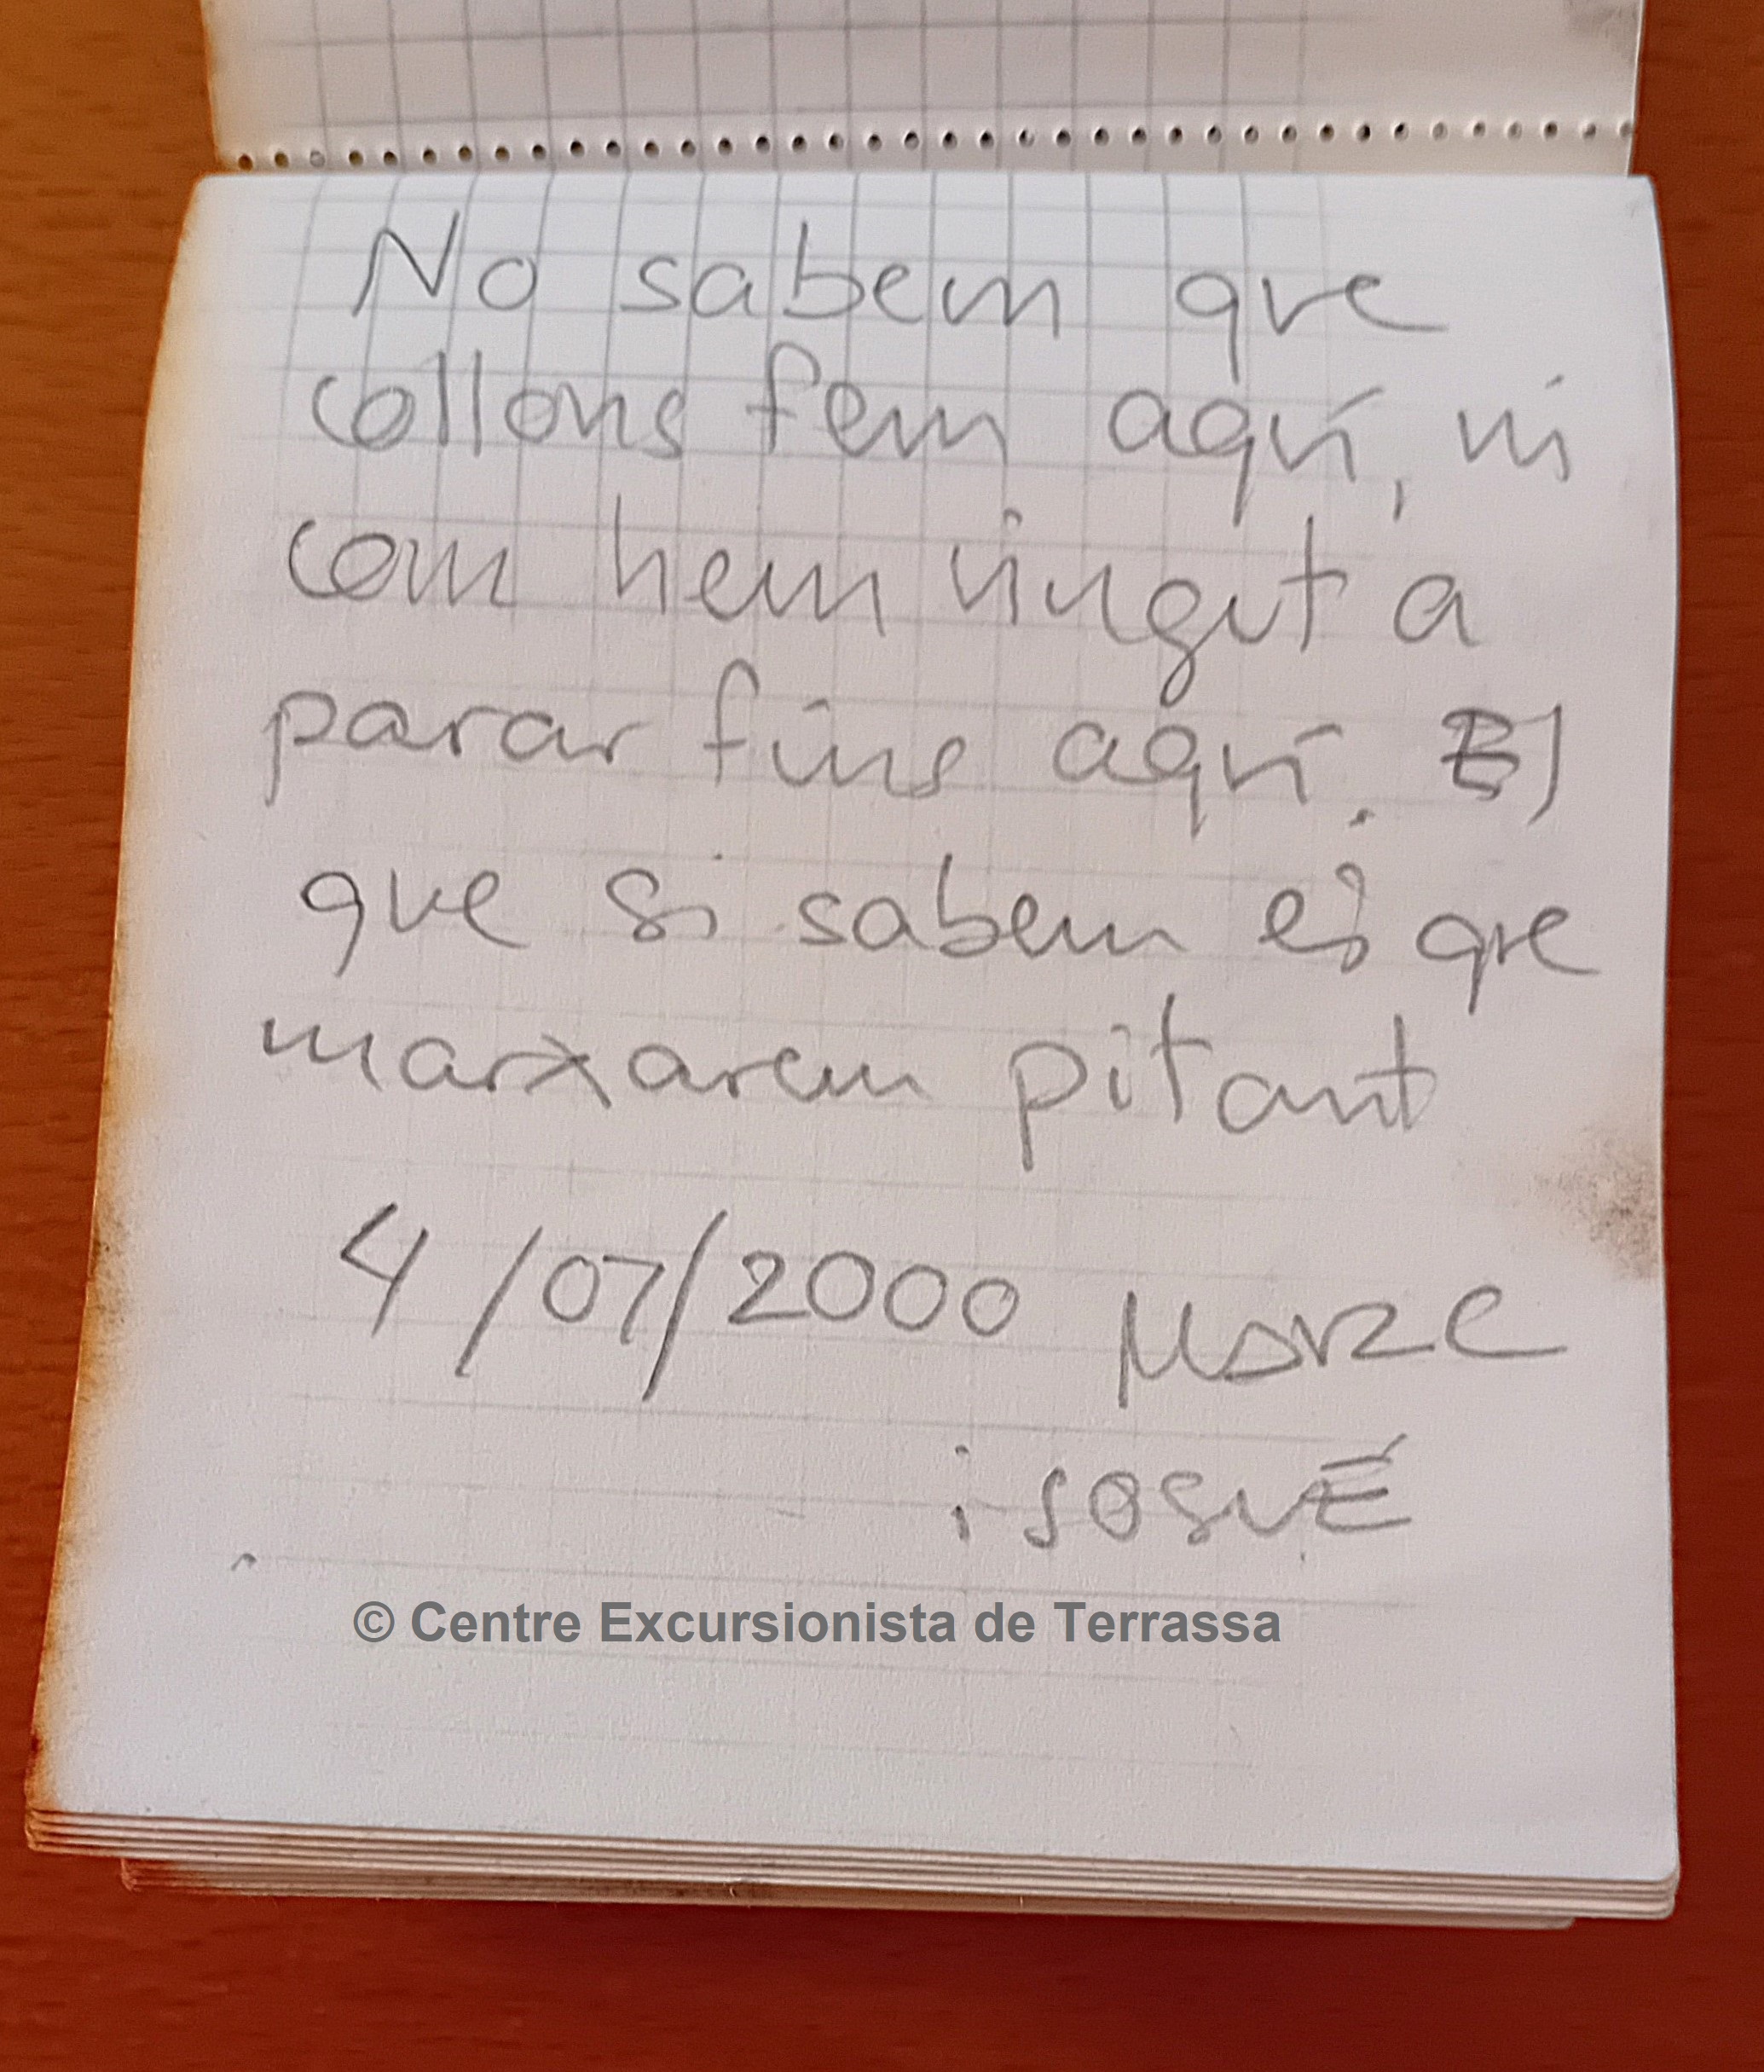 No sabem que
collons fem aquí, ni
com hem vingut a
parar fins aquí. El
que si sabem és que
marxarem pitant
4/07/2000 MARC
i JOSUÉ
© Centre Excursionista de Terrassa